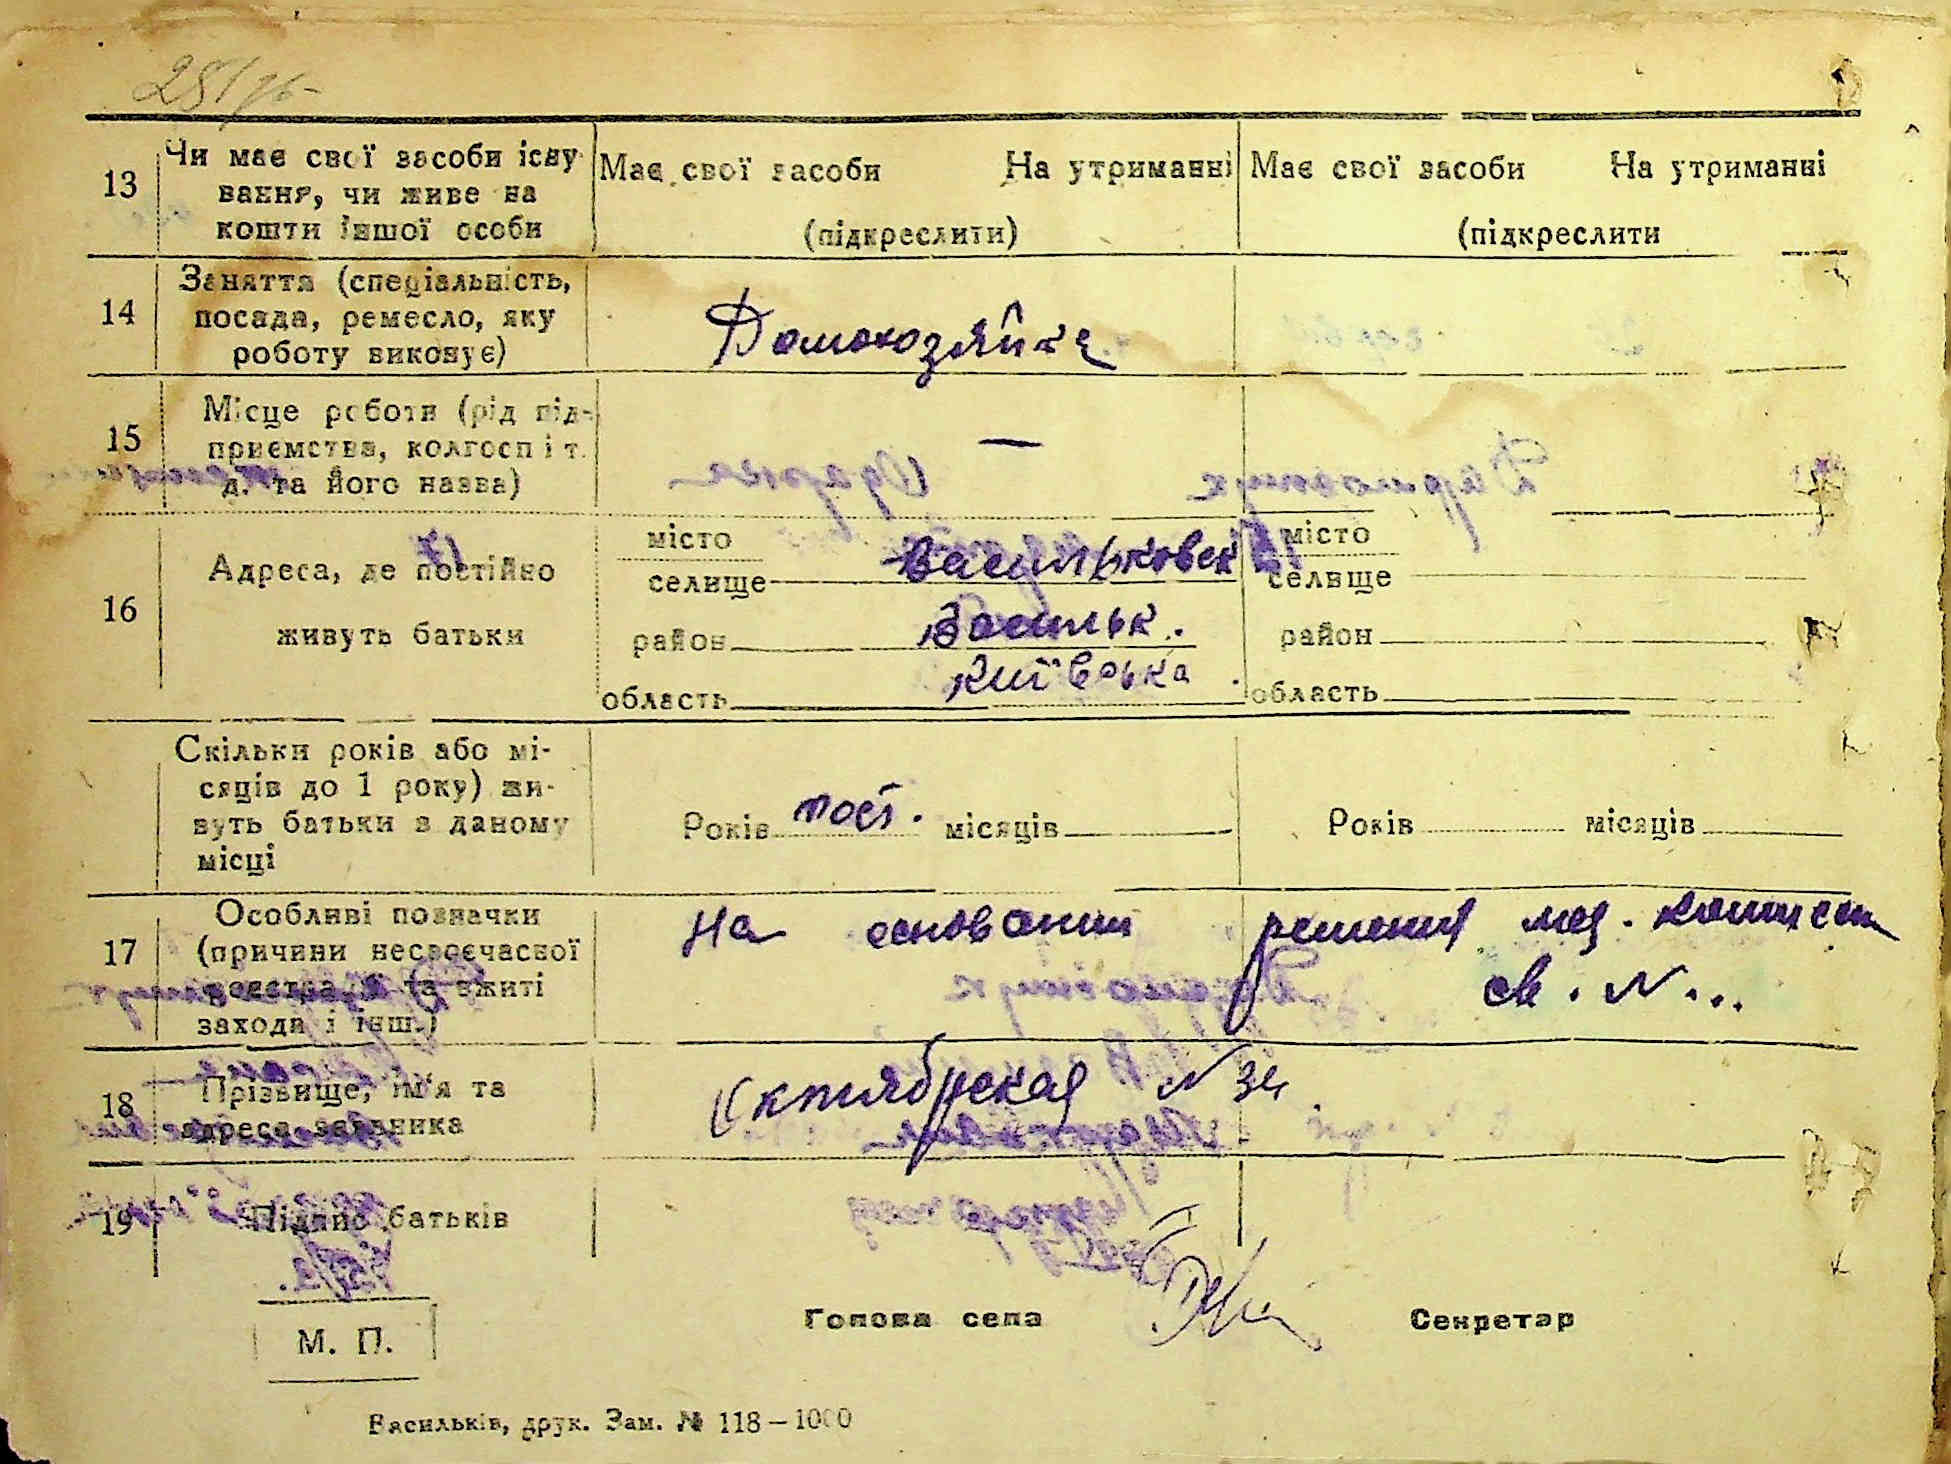 13 Чи має свої засоби існу
вання, чи живе на
кошти іншої особи
Має свої засоби На утриманні
(підкреслити)
Має свої засоби На утриманні
(підкреслити
14 Заняття (спеціальність,
посада, ремесло, яку
роботу виконує)
Домохозяйка
15 Місце роботи (рід під-
приємства, колгосп і т.
д. та його назва)
—
16 Адреса, де постійно
живуть батьки
місто
селище Васильковск
район Васильк.
область Київська
місто
селище
район
область
Скільки років або мі-
сяців до 1 року) жи-
вуть батьки в даному
місці
Років пост. місяців
Років місяців
17 Особливі позначки
(причини несвоєчасної
реєстрації та вжиті
заходи і інш.)
На основании решения мед. комиссии
св. N...
18 Прізвище, ім'я та
адреса заявника
Октябрьская N 34
19 Підпис батьків
М. П.
Голова села
Секретар
Васильків, друк. Зам. № 118 – 1000